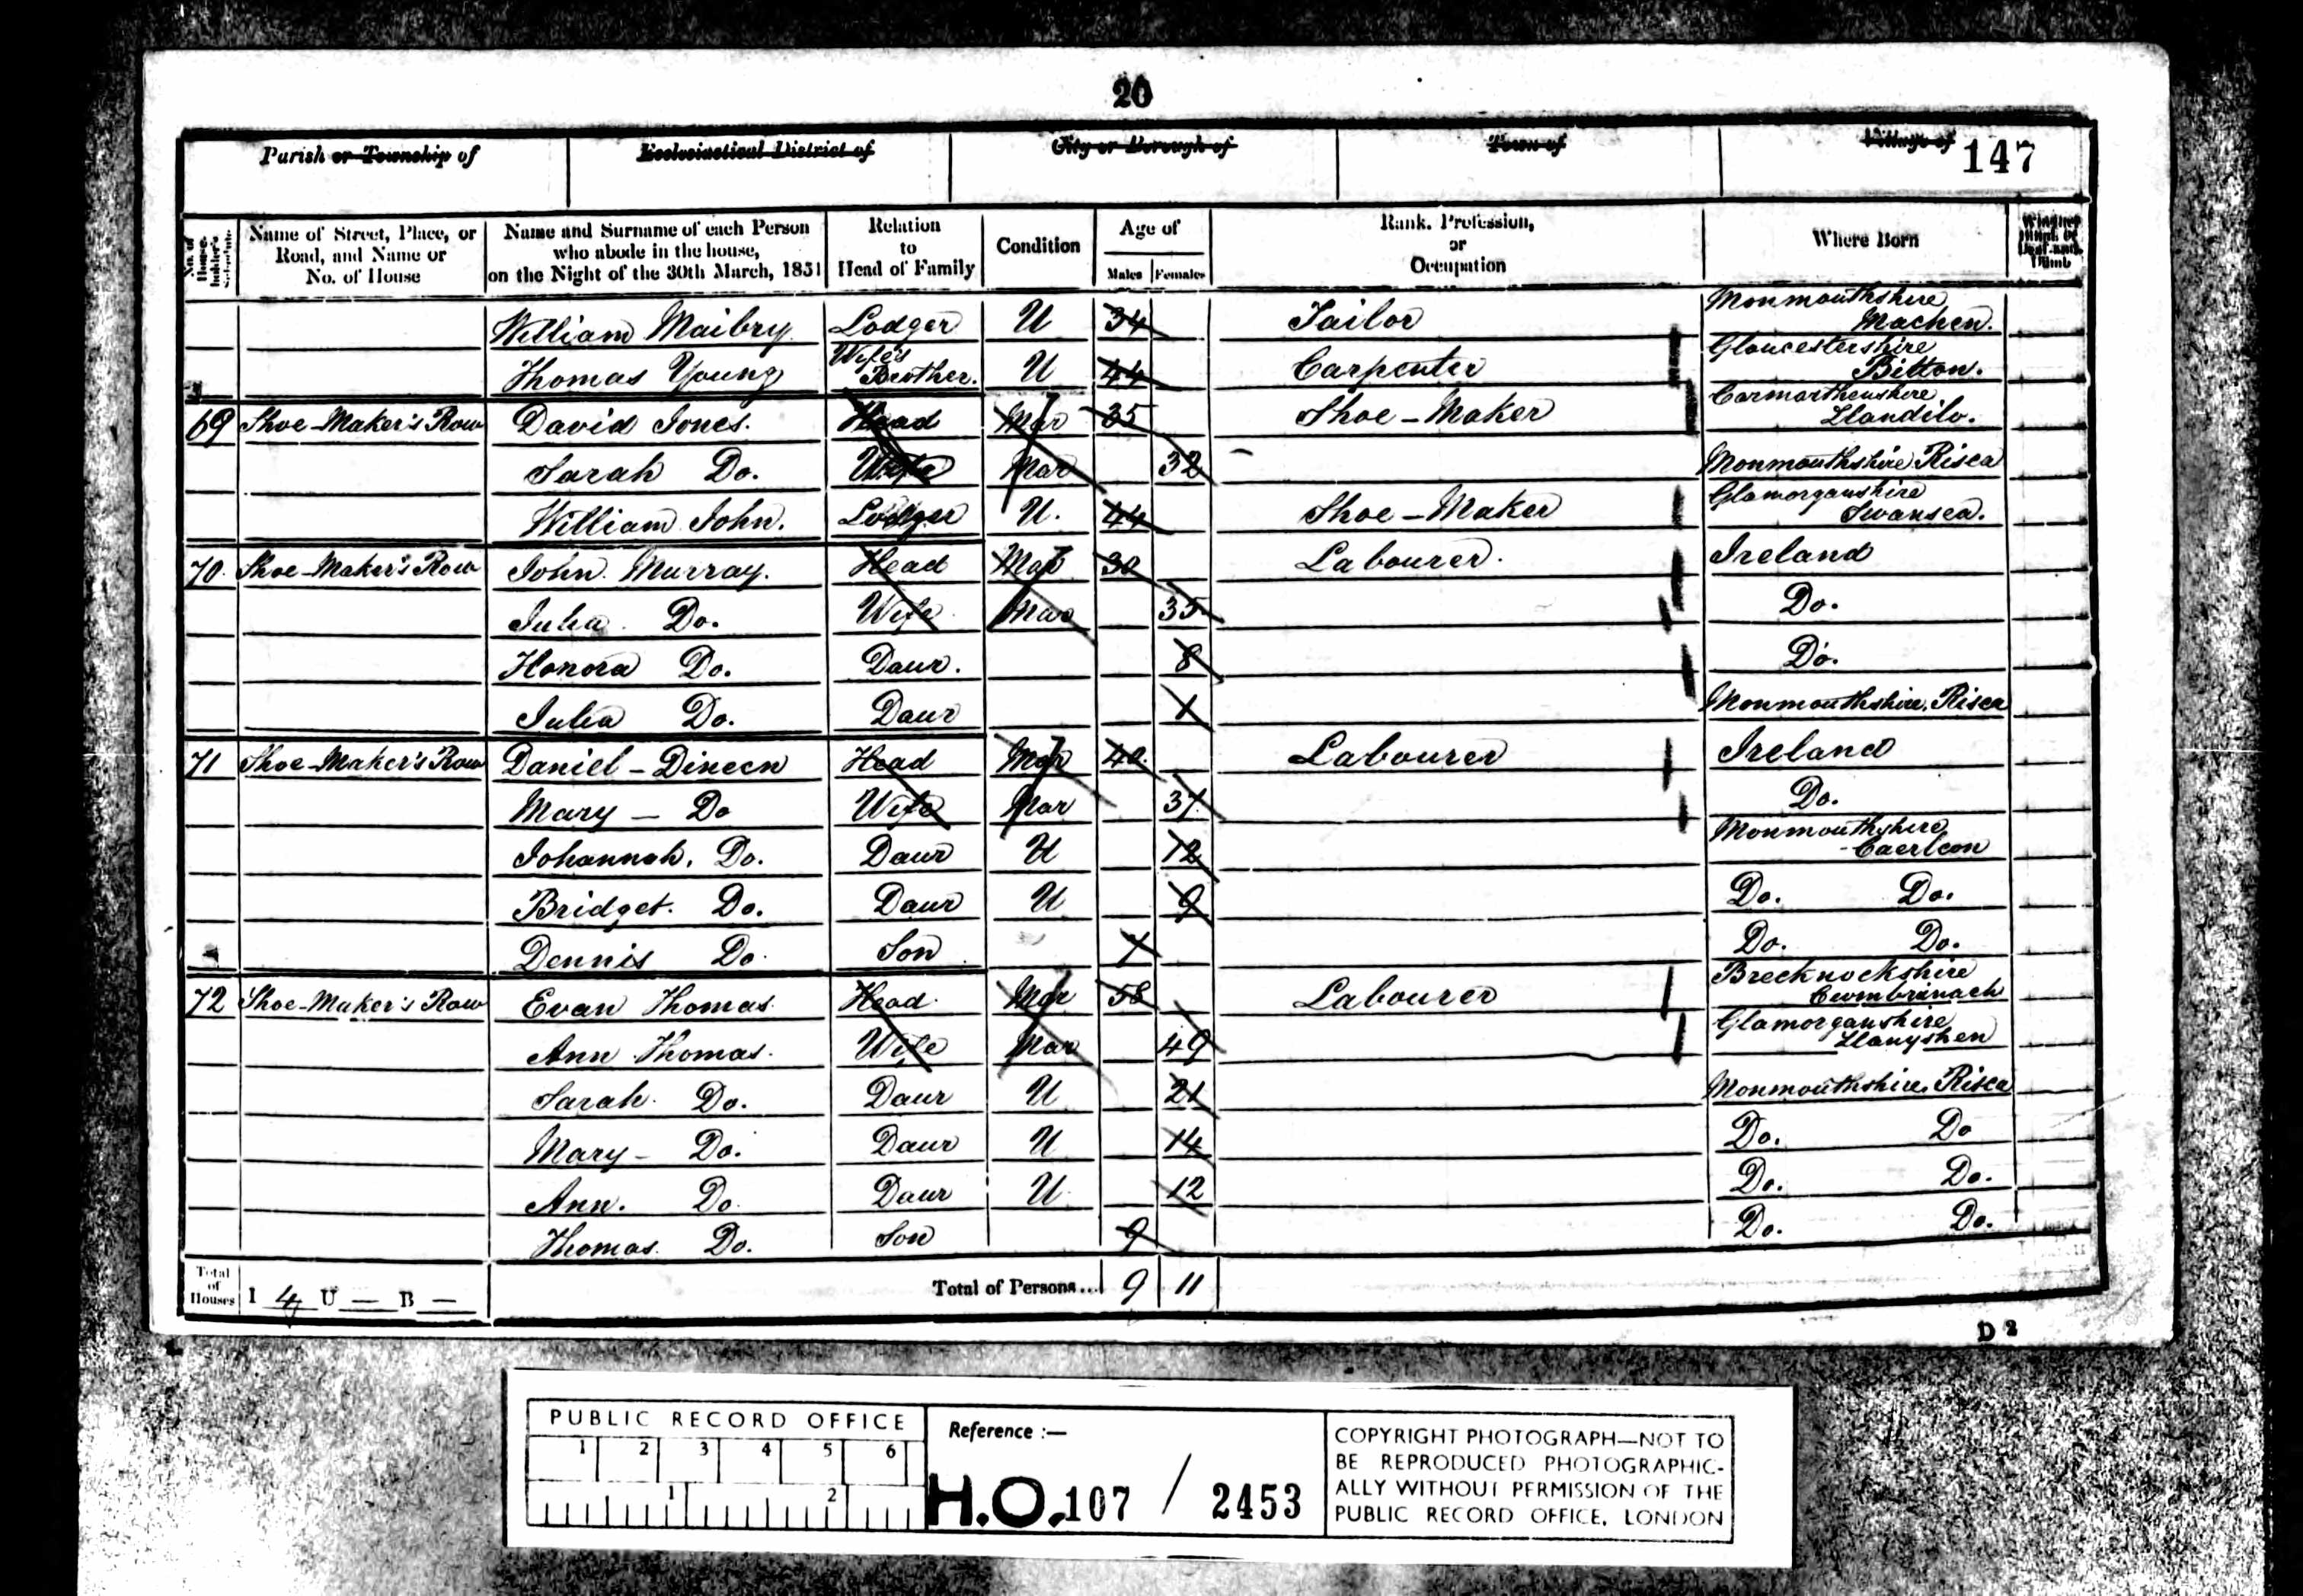 20
Parish or Township of Ecclesiastical District of City or Borough of Town of Village of 147
No. of House-holder's Schedule
Name of Street, Place, or Road, and Name or No. of House
Name and Surname of each Person who abode in the house, on the Night of the 30th March, 1851
Relation to Head of Family
Condition
Age of Males Females
Rank, Profession, or Occupation
Where Born
Whether Blind, or Deaf-and-Dumb
William Maibry. Lodger U 34 Tailor Monmouthshire Machen.
Thomas Young Wife's Brother. U 44 Carpenter Gloucestershire Bitton.
69 Shoe-Maker's Row David Jones. Head Mar 35 Shoe-Maker Carmarthenshire Llandilo.
Sarah Do. Wife Mar 32 Monmouthshire Risca
William John. Lodger U. 44 Shoe-Maker Glamorganshire Swansea.
70. Shoe-Maker's Row John Murray. Head Mar 30 Labourer. Ireland
Julia Do. Wife Mar 35 Do.
Honora Do. Daur. 8 Do.
Julia Do. Daur 1 Monmouthshire, Risca
71 Shoe-Maker's Row Daniel - Dineen Head Mar 40 Labourer Ireland
Mary - Do Wife Mar 37 Do.
Johannah. Do. Daur U 12 Monmouthshire Caerleon
Bridget. Do. Daur U 9 Do. Do.
Dennis Do. Son 7 Do. Do.
72 Shoe-Maker's Row Evan Thomas. Head Mar 58 Labourer Brecknockshire Cwmbrinach
Ann Thomas. Wife Mar 49 Glamorganshire Llanyshen
Sarah. Do. Daur U 21 Monmouthshire, Risca
Mary - Do. Daur U 14 Do. Do
Ann. Do. Daur U 12 Do. Do.
Thomas. Do. Son 9 Do. Do.
Total of Houses I 4 U — B — Total of Persons... 9 11
D 2
PUBLIC RECORD OFFICE
1 2 3 4 5 6
1 2
Reference :—
H.O. 107 / 2453
COPYRIGHT PHOTOGRAPH—NOT TO
BE REPRODUCED PHOTOGRAPHIC-
ALLY WITHOUT PERMISSION OF THE
PUBLIC RECORD OFFICE, LONDON